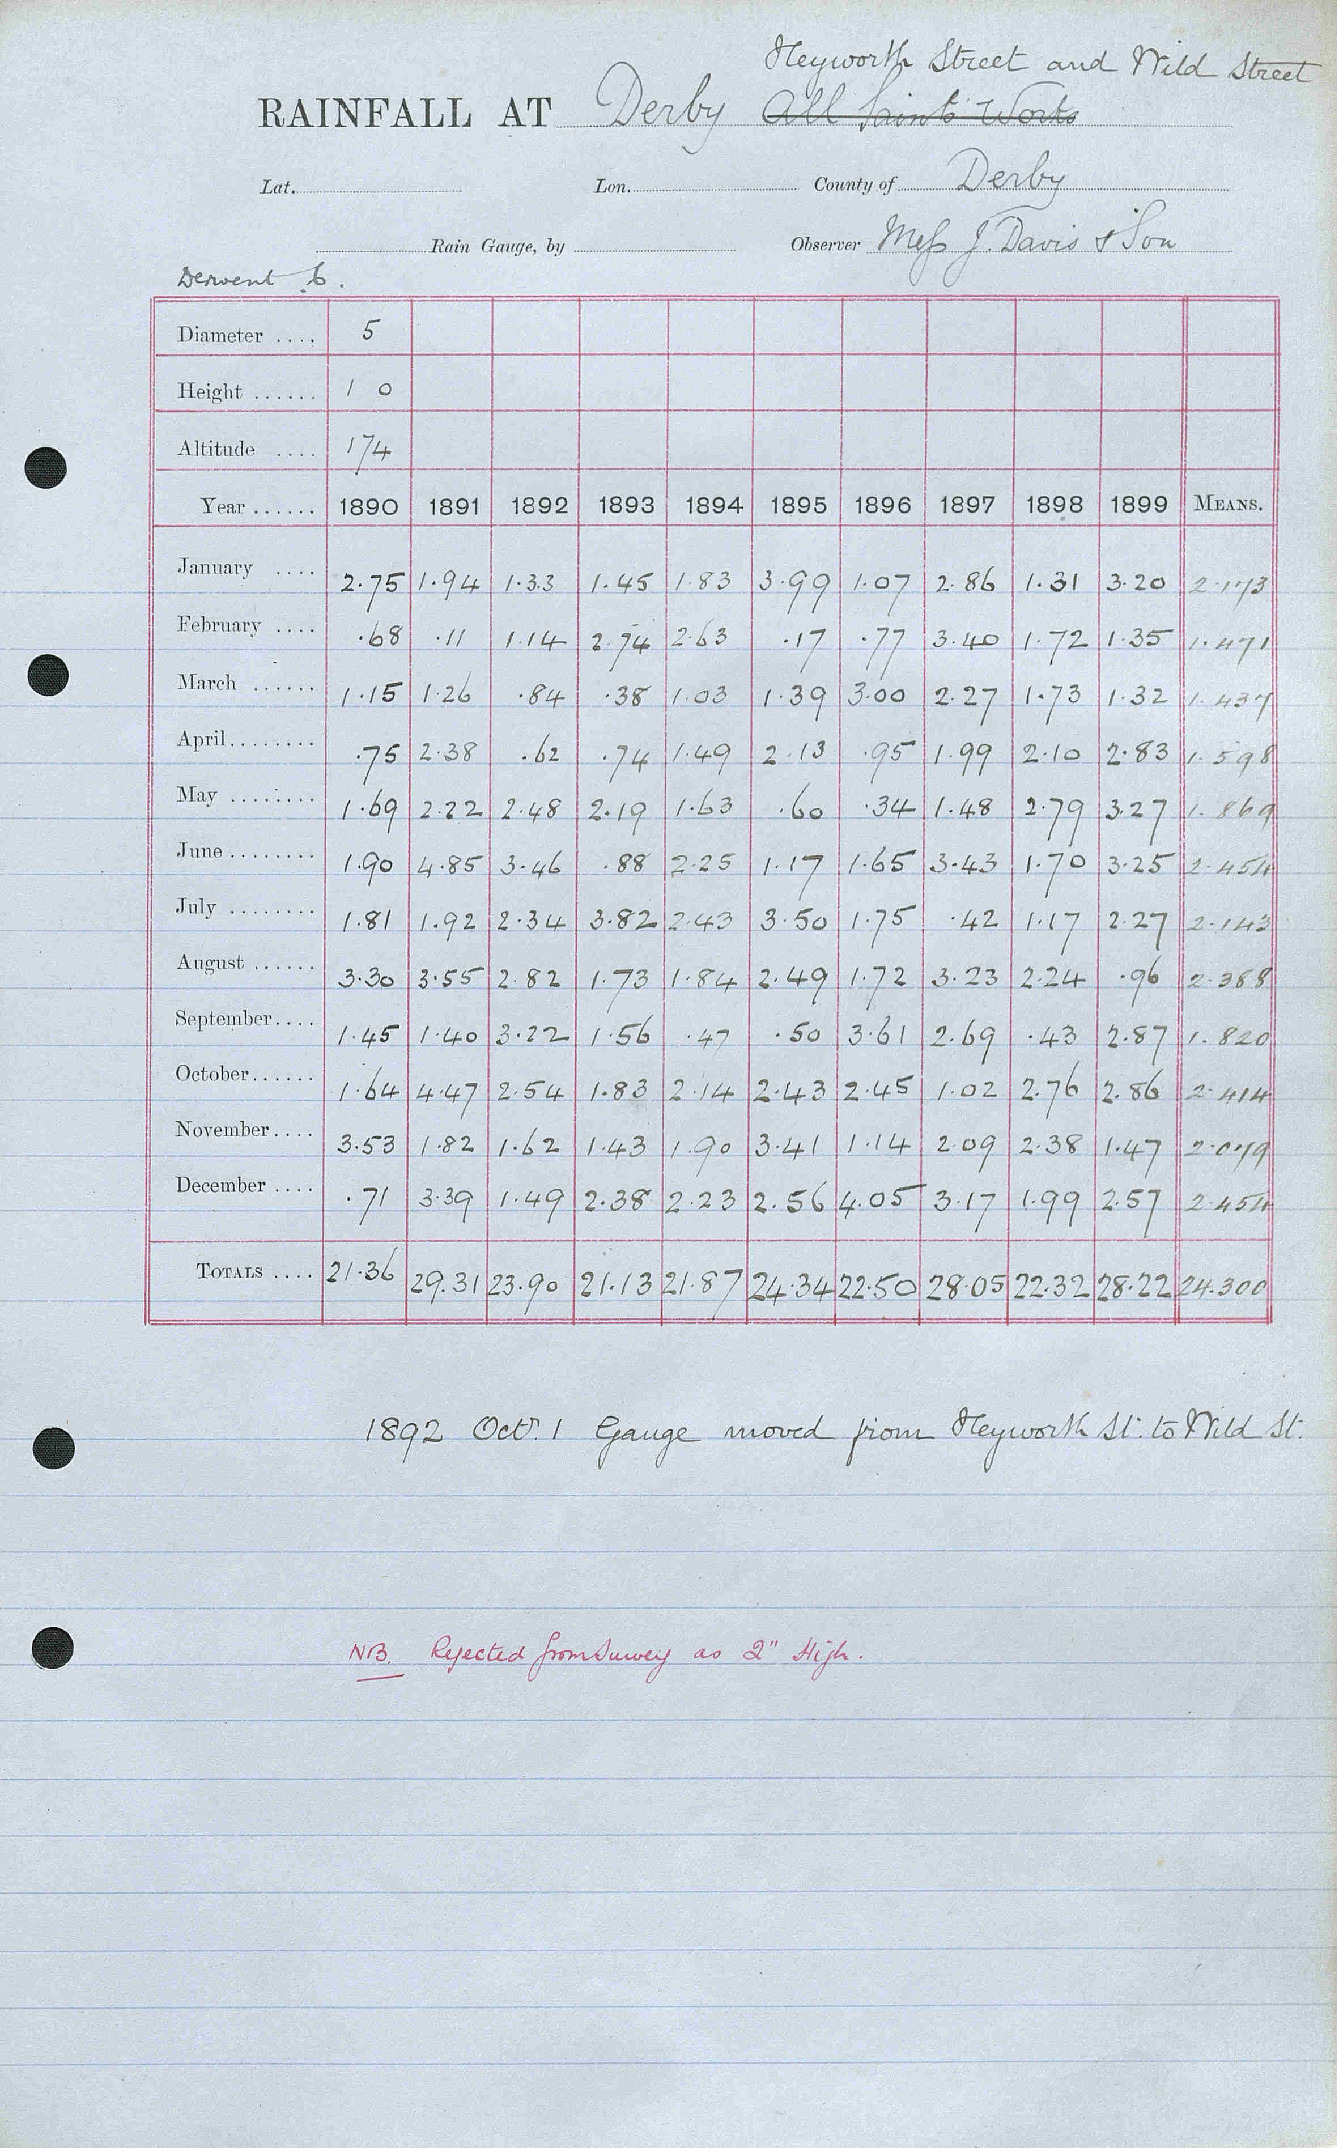 Heyworth Street and Wild Street
RAINFALL AT Derby All Saints Works
Lat. Lon. County of Derby
Rain Gauge, by Observer Mess J. Davis & Son
Derwent 6.
Diameter .... 5
Height ...... 1 0
Altitude .... 174
Year ...... 1890 1891 1892 1893 1894 1895 1896 1897 1898 1899 MEANS.
January .... 2.75 1.94 1.33 1.45 1.83 3.99 1.07 2.86 1.31 3.20 2.173
February .... .68 .11 1.14 2.74 2.63 .17 .77 3.40 1.72 1.35 1.471
March ...... 1.15 1.26 .84 .38 1.03 1.39 3.00 2.27 1.73 1.32 1.437
April........ .75 2.38 .62 .74 1.49 2.13 .95 1.99 2.10 2.83 1.598
May ........ 1.69 2.22 2.48 2.19 1.63 .60 .34 1.48 2.79 3.27 1.869
June........ 1.90 4.85 3.46 .88 2.25 1.17 1.65 3.43 1.70 3.25 2.454
July ........ 1.81 1.92 2.34 3.82 2.43 3.50 1.75 .42 1.17 2.27 2.143
August ...... 3.30 3.55 2.82 1.73 1.84 2.49 1.72 3.23 2.24 .96 2.388
September.... 1.45 1.40 3.22 1.56 .47 .50 3.61 2.69 .43 2.87 1.820
October...... 1.64 4.47 2.54 1.83 2.14 2.43 2.45 1.02 2.76 2.86 2.414
November.... 3.53 1.82 1.62 1.43 1.90 3.41 1.14 2.09 2.38 1.47 2.079
December .... .71 3.39 1.49 2.38 2.23 2.56 4.05 3.17 1.99 2.57 2.454
TOTALS .... 21.36 29.31 23.90 21.13 21.87 24.34 22.50 28.05 22.32 28.22 24.300
1892 Octr. 1 Gauge moved from Heyworth St. to Wild St.
NB. Rejected from Survey as 2" High.